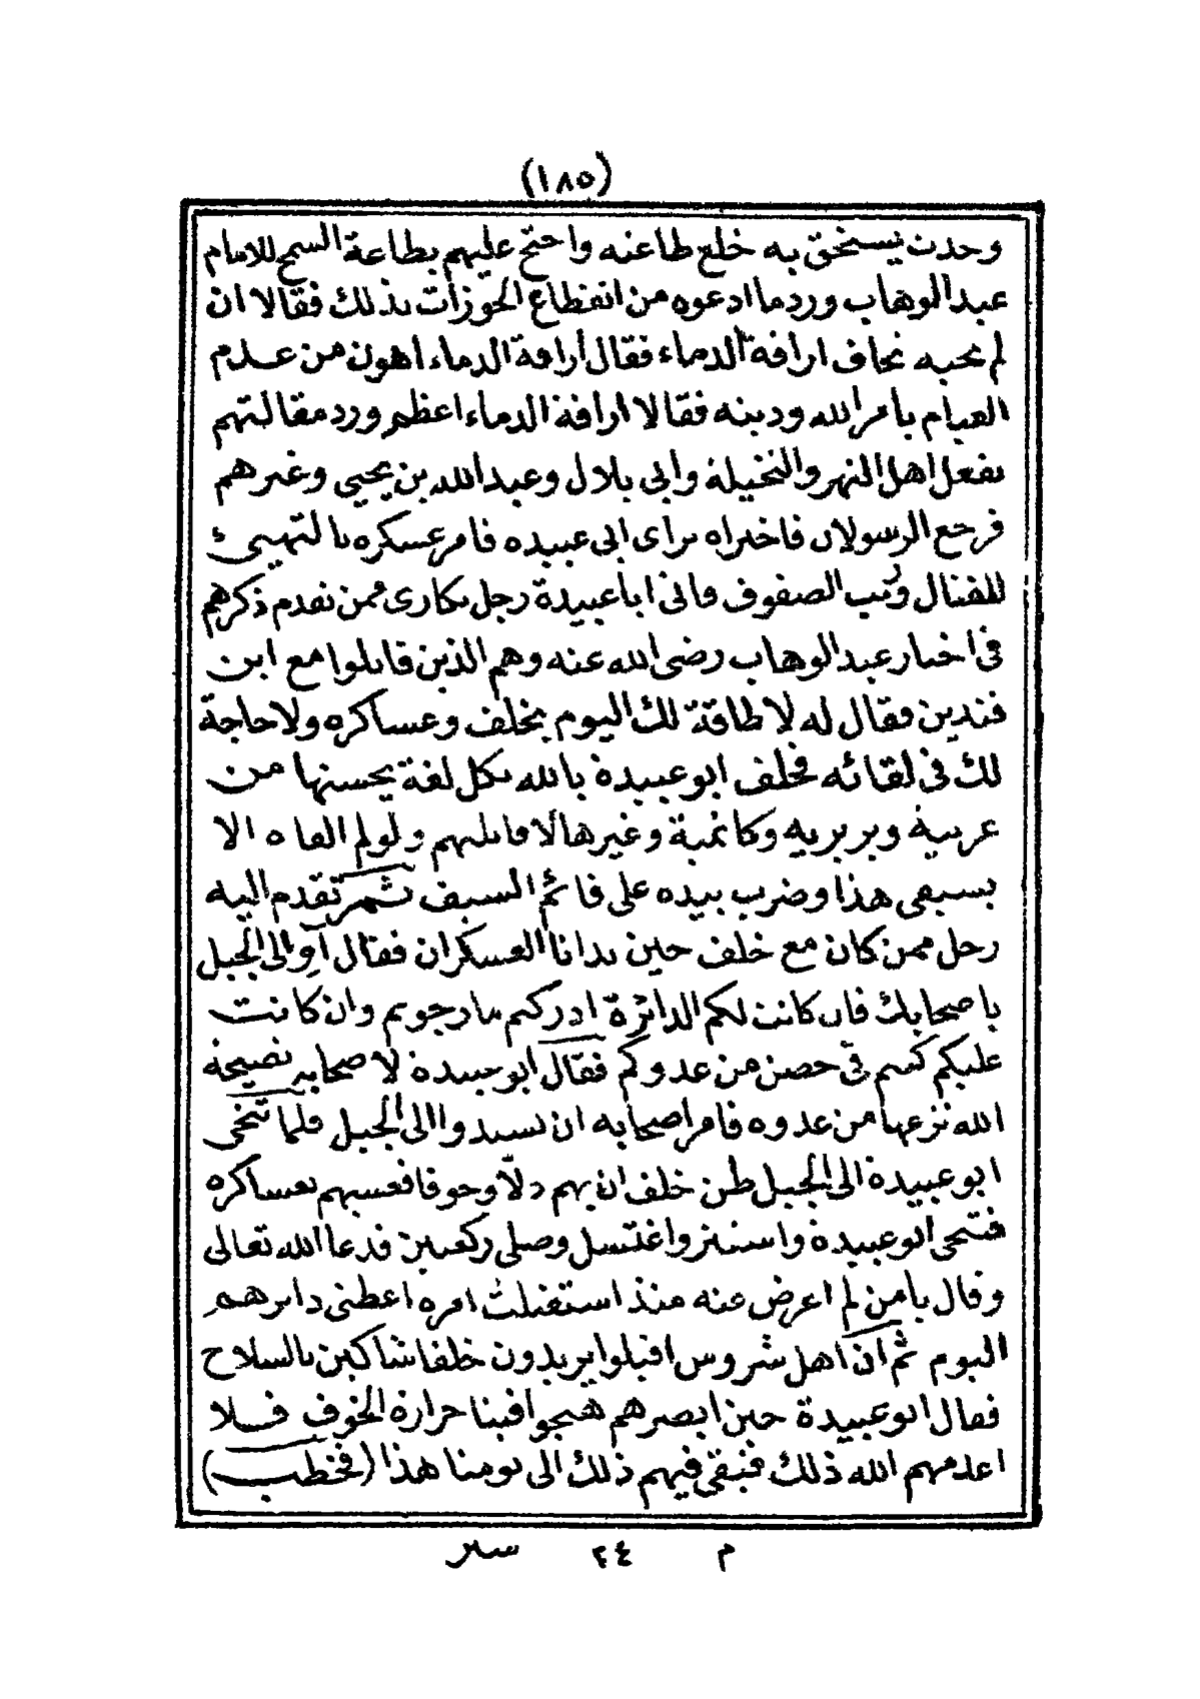 (١٨٥)
وحدث يستحق به خلع طاعنه واحتج عليهم بطاعة السمح للامام
عبد الوهاب ورد ما ادعوه من انقطاع الحوزات بذلك فقالا ان
لم نحبه نخاف اراقة الدماء فقال اراقة الدماء اهون من عدم
القيام بامر الله ودينه فقالا اراقة الدماء اعظم ورد مقالتهم
بفعل اهل النهر والنخيلة وابي بلال وعبد الله بن يحيى وغيرهم
فرجع الرسولان فاخبراه براى ابي عبيده فامر عسكره بالتهيئ
للقتال ورتب الصفوف فاتى ابا عبيدة رجل بكارى ممن تقدم ذكرهم
في اخبار عبد الوهاب رضى الله عنه وهم الذين قاتلوا مع ابن
فندين فقال له لا طاقة لك اليوم بخلف وعساكره ولا حاجة
لك في لقائه فحلف ابو عبيدة بالله بكل لغة يحسنها من
عربية وبربريه وكانمية وغيرها لاقاتلنهم ولو لم القاه الا
بسيفى هذا وضرب بيده على قائم السيف ثم تقدم اليه
رجل ممن كان مع خلف حين تدانا العسكران فقال آوِ الى الجبل
باصحابك فان كانت لكم الدائرة ادركتم ما رجوتم وان كانت
عليكم كنتم في حصن من عدوكم فقال ابو عبيدة لاصحابه نصيحة
الله نزعها من عدوه فامر اصحابه ان يسندوا الى الجبل فلما تنحى
ابو عبيدة الى الجبل ظن خلف ان بهم ذلاً وخوفا فغشيهم بعساكره
فتنحى ابو عبيدة واستتر واغتسل وصلى ركعتين فدعا الله تعالى
وقال يا من لم اعرض عنه منذ استقبلت امره اعطنى دابرهم
اليوم ثم ان اهل شروس اقبلوا يريدون خلفا شاكين بالسلاح
فقال ابو عبيدة حين ابصرهم هيجوا فينا حرارة الخوف فلا
اعدمهم الله ذلك فبقى فيهم ذلك الى يومنا هذا (فخطب)
م ٢٤ سير